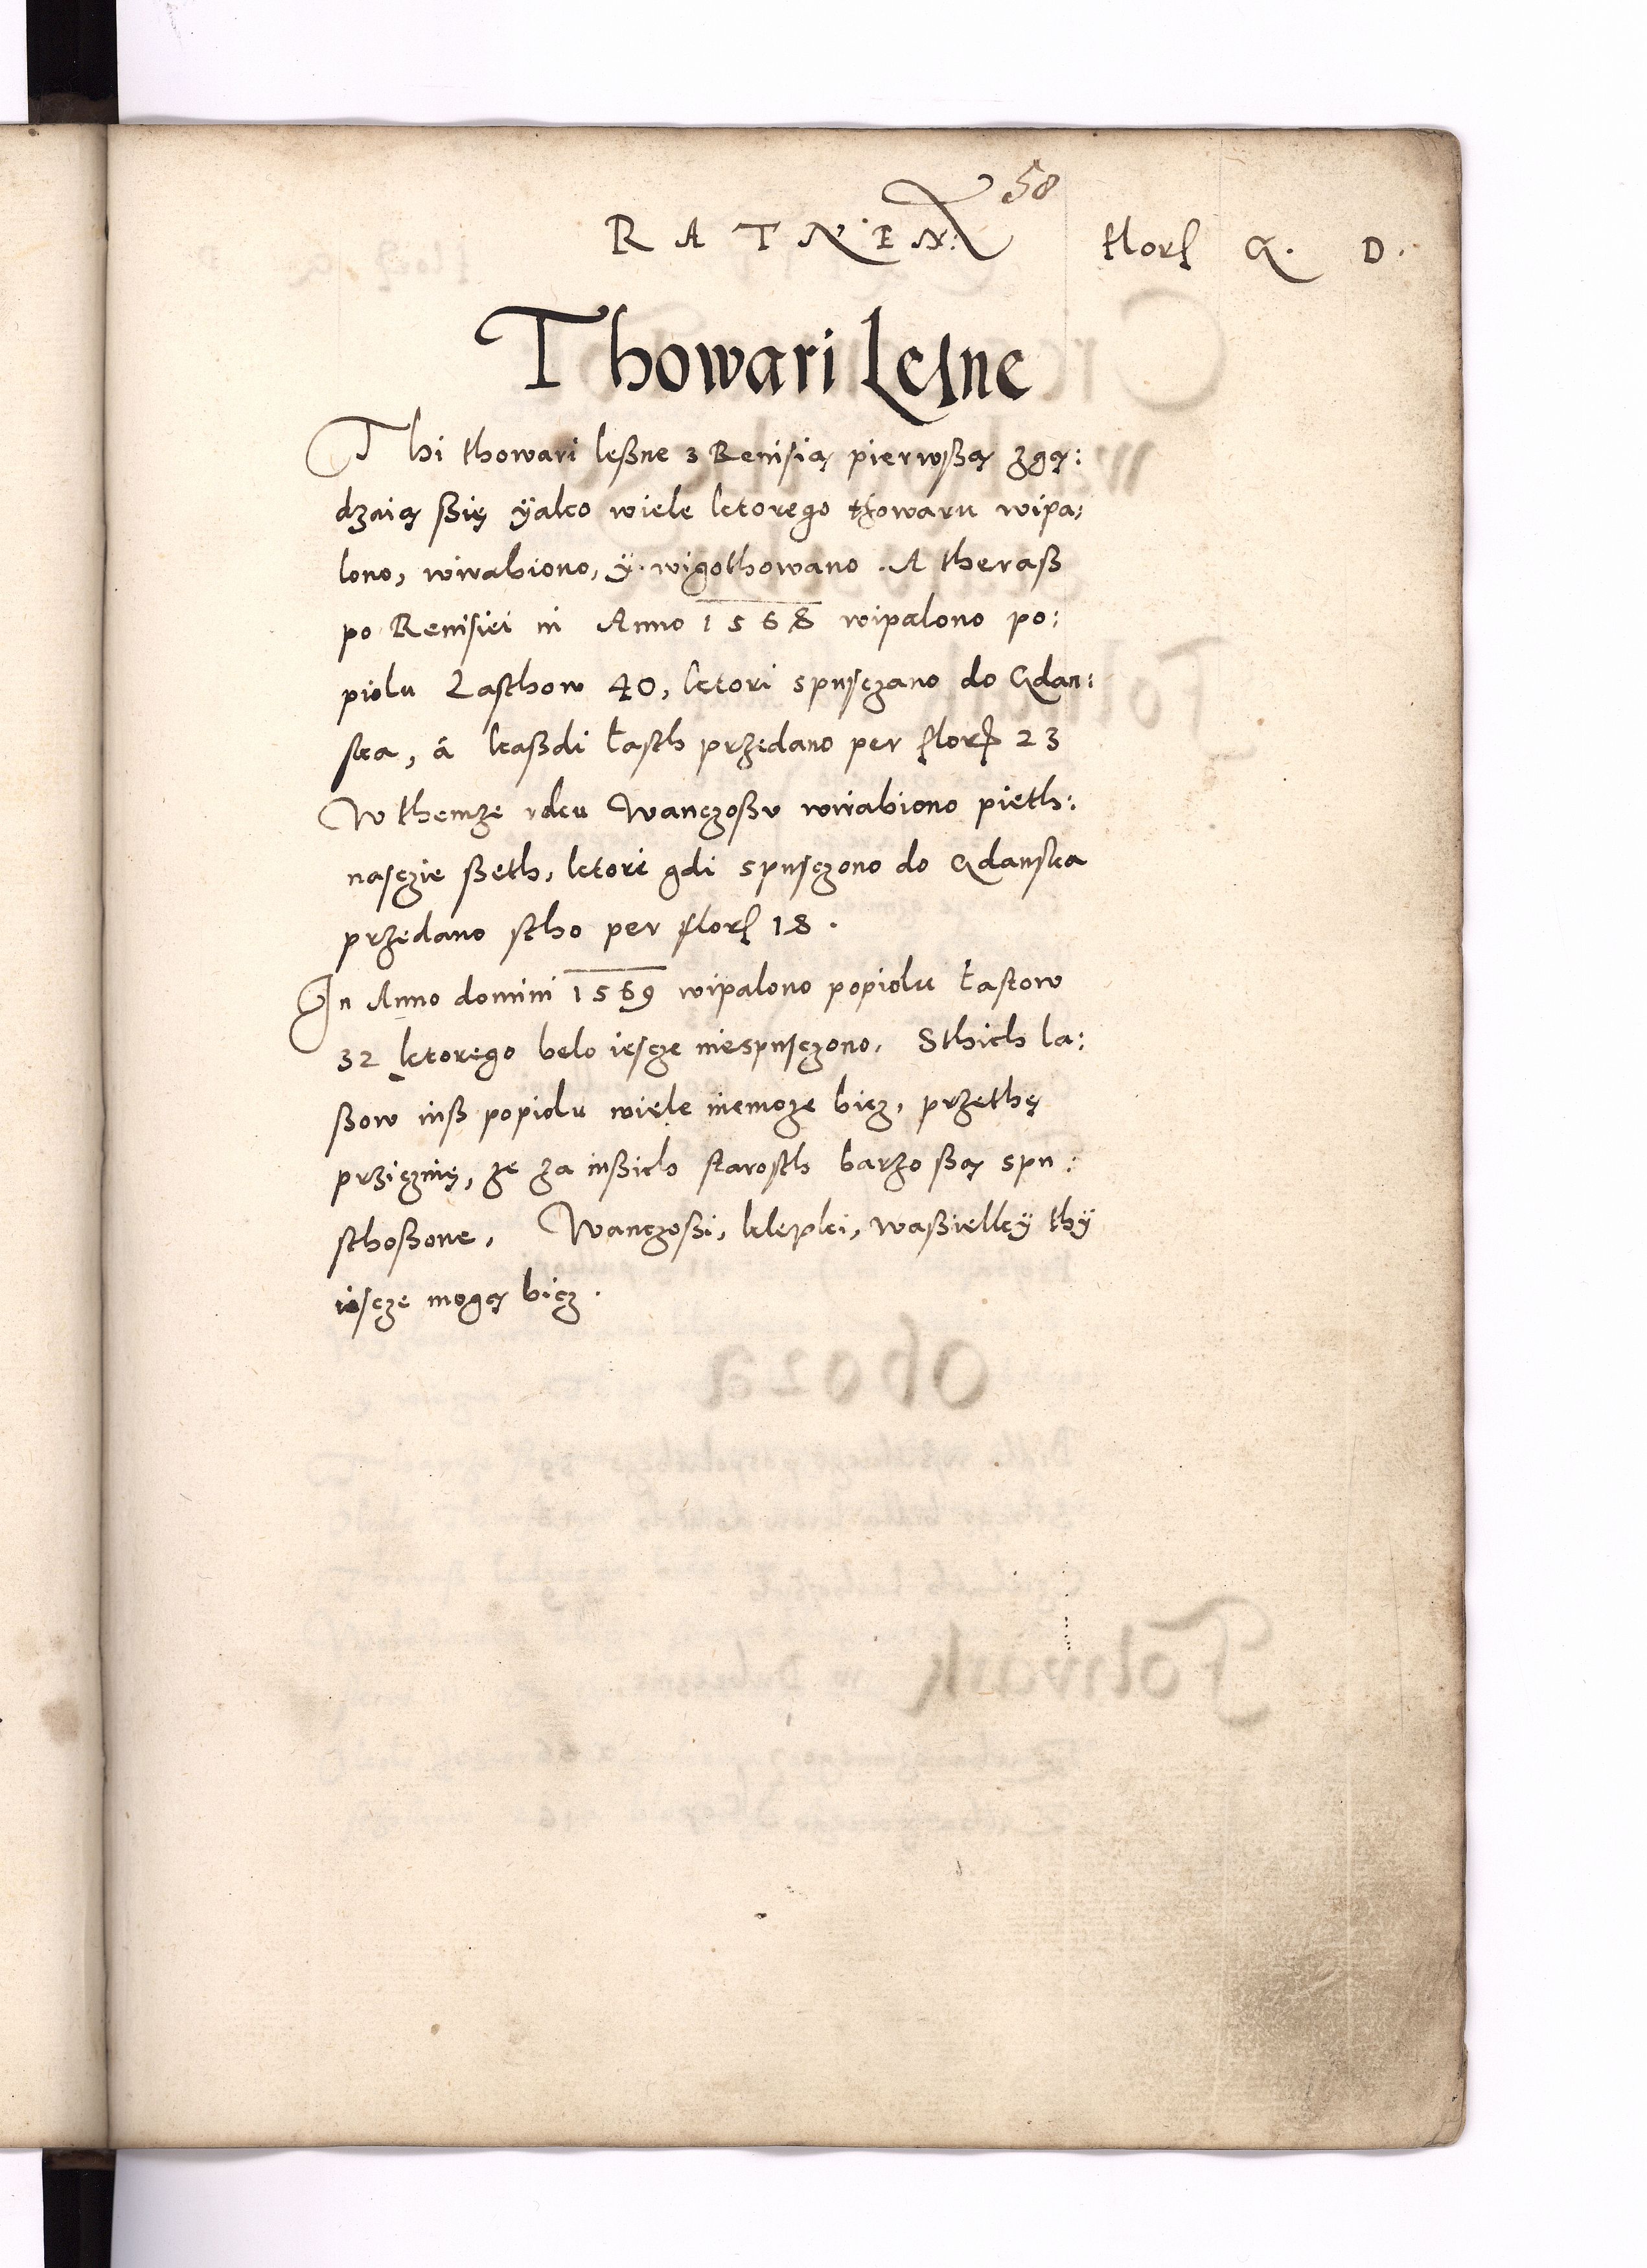 58
RATNEN: flor G. D.
Thowari Leſne
Thi thowari leßne z Reuiſią pierwßą zgą:
dzaią ßię ÿako wiele ktorego thowaru wipa:
lono, wirabiono, ÿ wigothowano. A theraß
po Reuiſiei in Anno 1568 wipalono po:
piolu Laſthow 40, ktori spuſczano do Gdan:
ſka, á kaßdi łaſth przedano per flor 23
W themże rdku Wanczoßu wirabiono pieth:
naſczie ßeth, ktori gdi spuſczono do Gdanſka
przedano ſtho per flor 18.
In Anno domini 1569 wipalono popiolu łaſtow
32 ktorego belo ieſcze nieſpuſczono, Sthich la:
ßow inß popiolu wiele niemoze bicz, przethę
prziczinę, ze za inßich ſtaroſth barzo ßą spu:
ſthoßone, Wanczoßi, klepki, waßielkÿ thÿ
ieſcze mogą bicz.